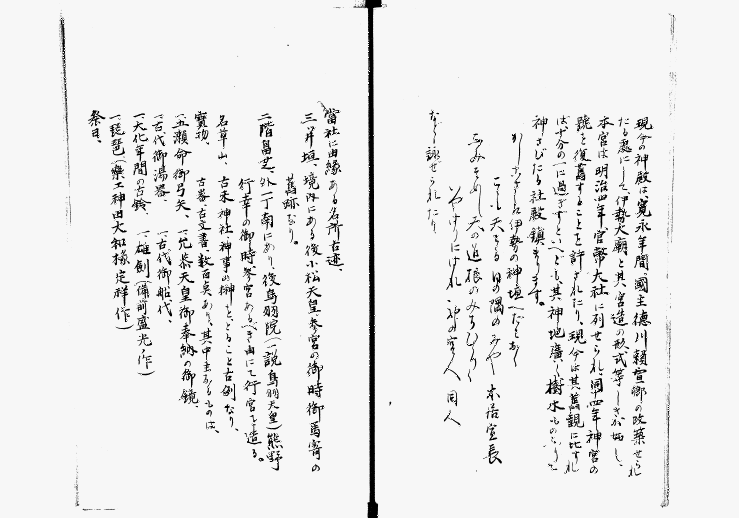 現今の神殿は、寛永年間國主徳川頼宣卿の改築せられ
たる處にして、伊勢大廟と其宮造の形式等しきが如し、
本宮は明治四年官幣大社に列せられ、同十四年神宮の
號を復舊することを許されたり、現今は其舊観に比すれ
ば十分の一に過ぎずといへども、其神地廣く樹木ものふりて
神さびたる社殿鎮まります。
伊勢の神垣へだてなく
天てる日の隈のみや 本居宣長
天の道根のみちひらく
宮人 同人
など詠ぜられたり
當社に由縁ある名所古迹、
三井垣、境内にある後小松天皇、参宮の御時御馬寄の
舊跡なり。
二階畠芝、外一丁南にあり、後鳥羽院(一説鳥羽天皇)熊野
行幸の御時参宮あるべき由にて行宮を造る。
名草山、古来神社、神事の榊をとること古例なり、
寳物、 古器、古文書、数百点あり、其中主なるものは、
一五瀬命御弓矢、 一允恭天皇御奉納の御鏡、
一古代御湯器、 一古代御船代、
一大化年間の古鈴、 一雄剣(備前盛光の作)
一琵琶(樂工神田大和掾定祥作)
祭日、